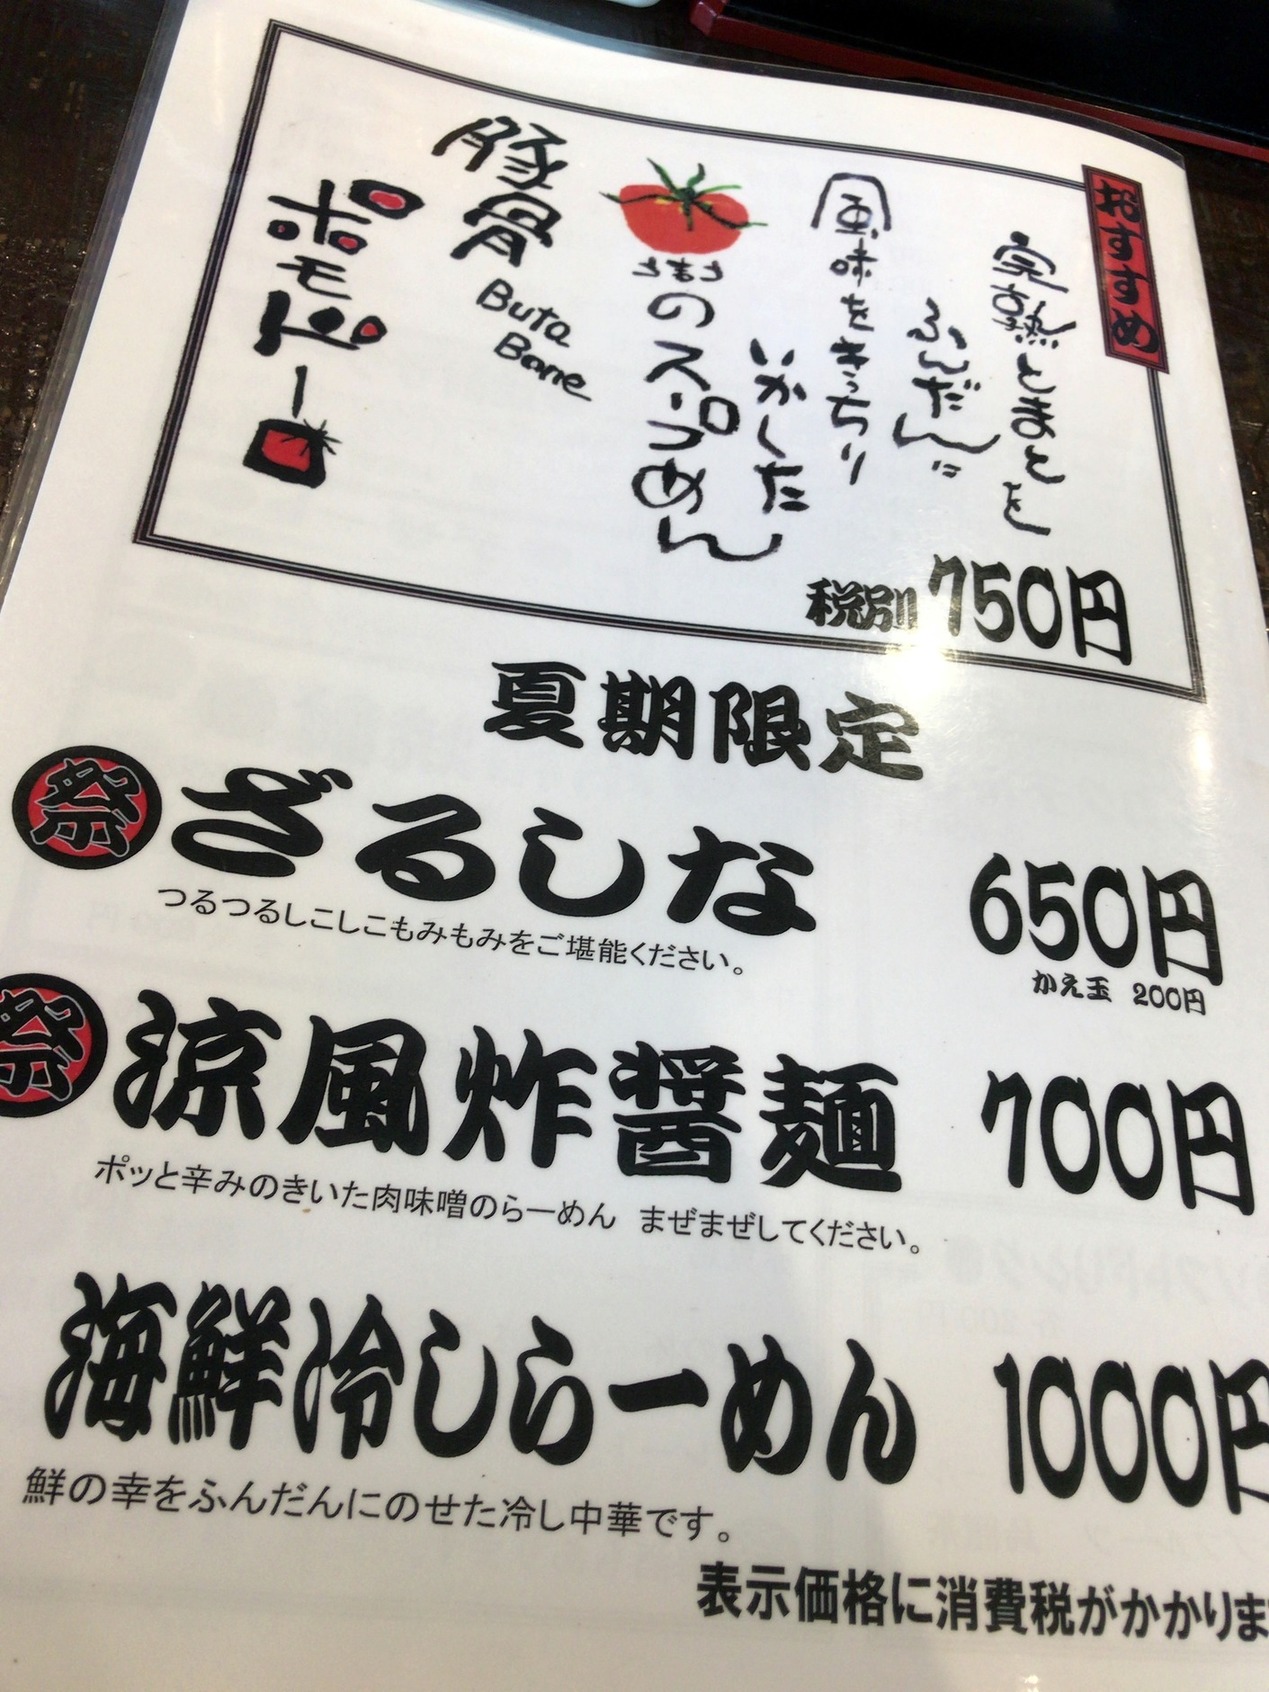 おすすめ
完熟とまとを
ふんだんに
風味をきっちり
いかした
うまうま
のスープめん
豚骨
Buta
Bone
ポモドーロ
税別 750円
夏期限定
祭 ざるしな 650円
つるつるしこしこもみもみをご堪能ください。
かえ玉 200円
祭 涼風炸醤麺 700円
ポッと辛みのきいた肉味噌のらーめん まぜまぜしてください。
海鮮冷しらーめん 1000円
鮮の幸をふんだんにのせた冷し中華です。
表示価格に消費税がかかりま